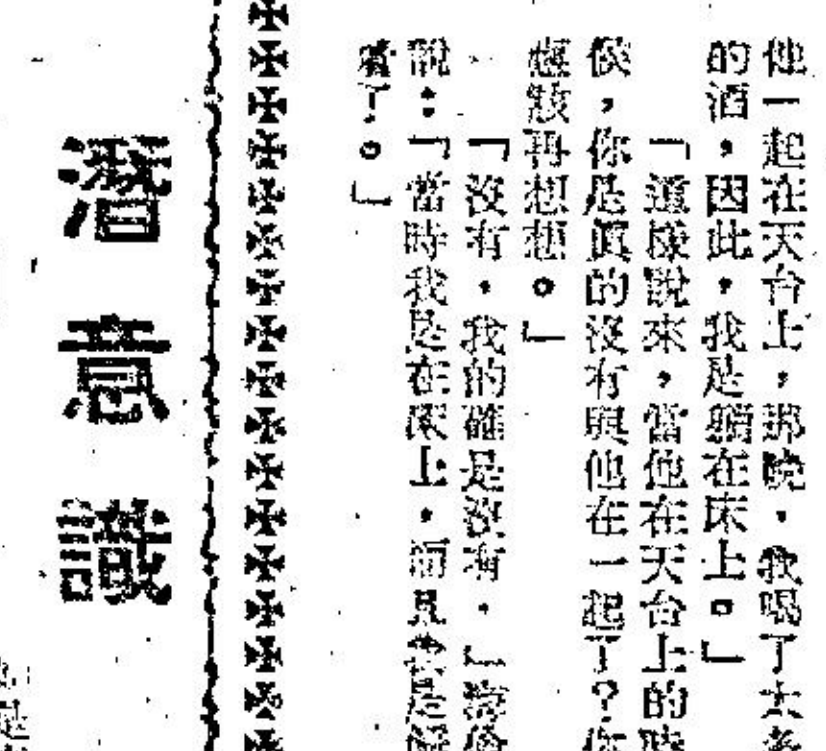 他一起在天台上，那晚，我喝了太多
的酒，因此，我是躺在床上。」
「這樣說來，當他在天台上的時
候，你是真的沒有與他在一起了？你
應該再想想。」
「沒有，我的確是沒有。」
說：「當時我是在床上，而且我是
着了。」
潛意識